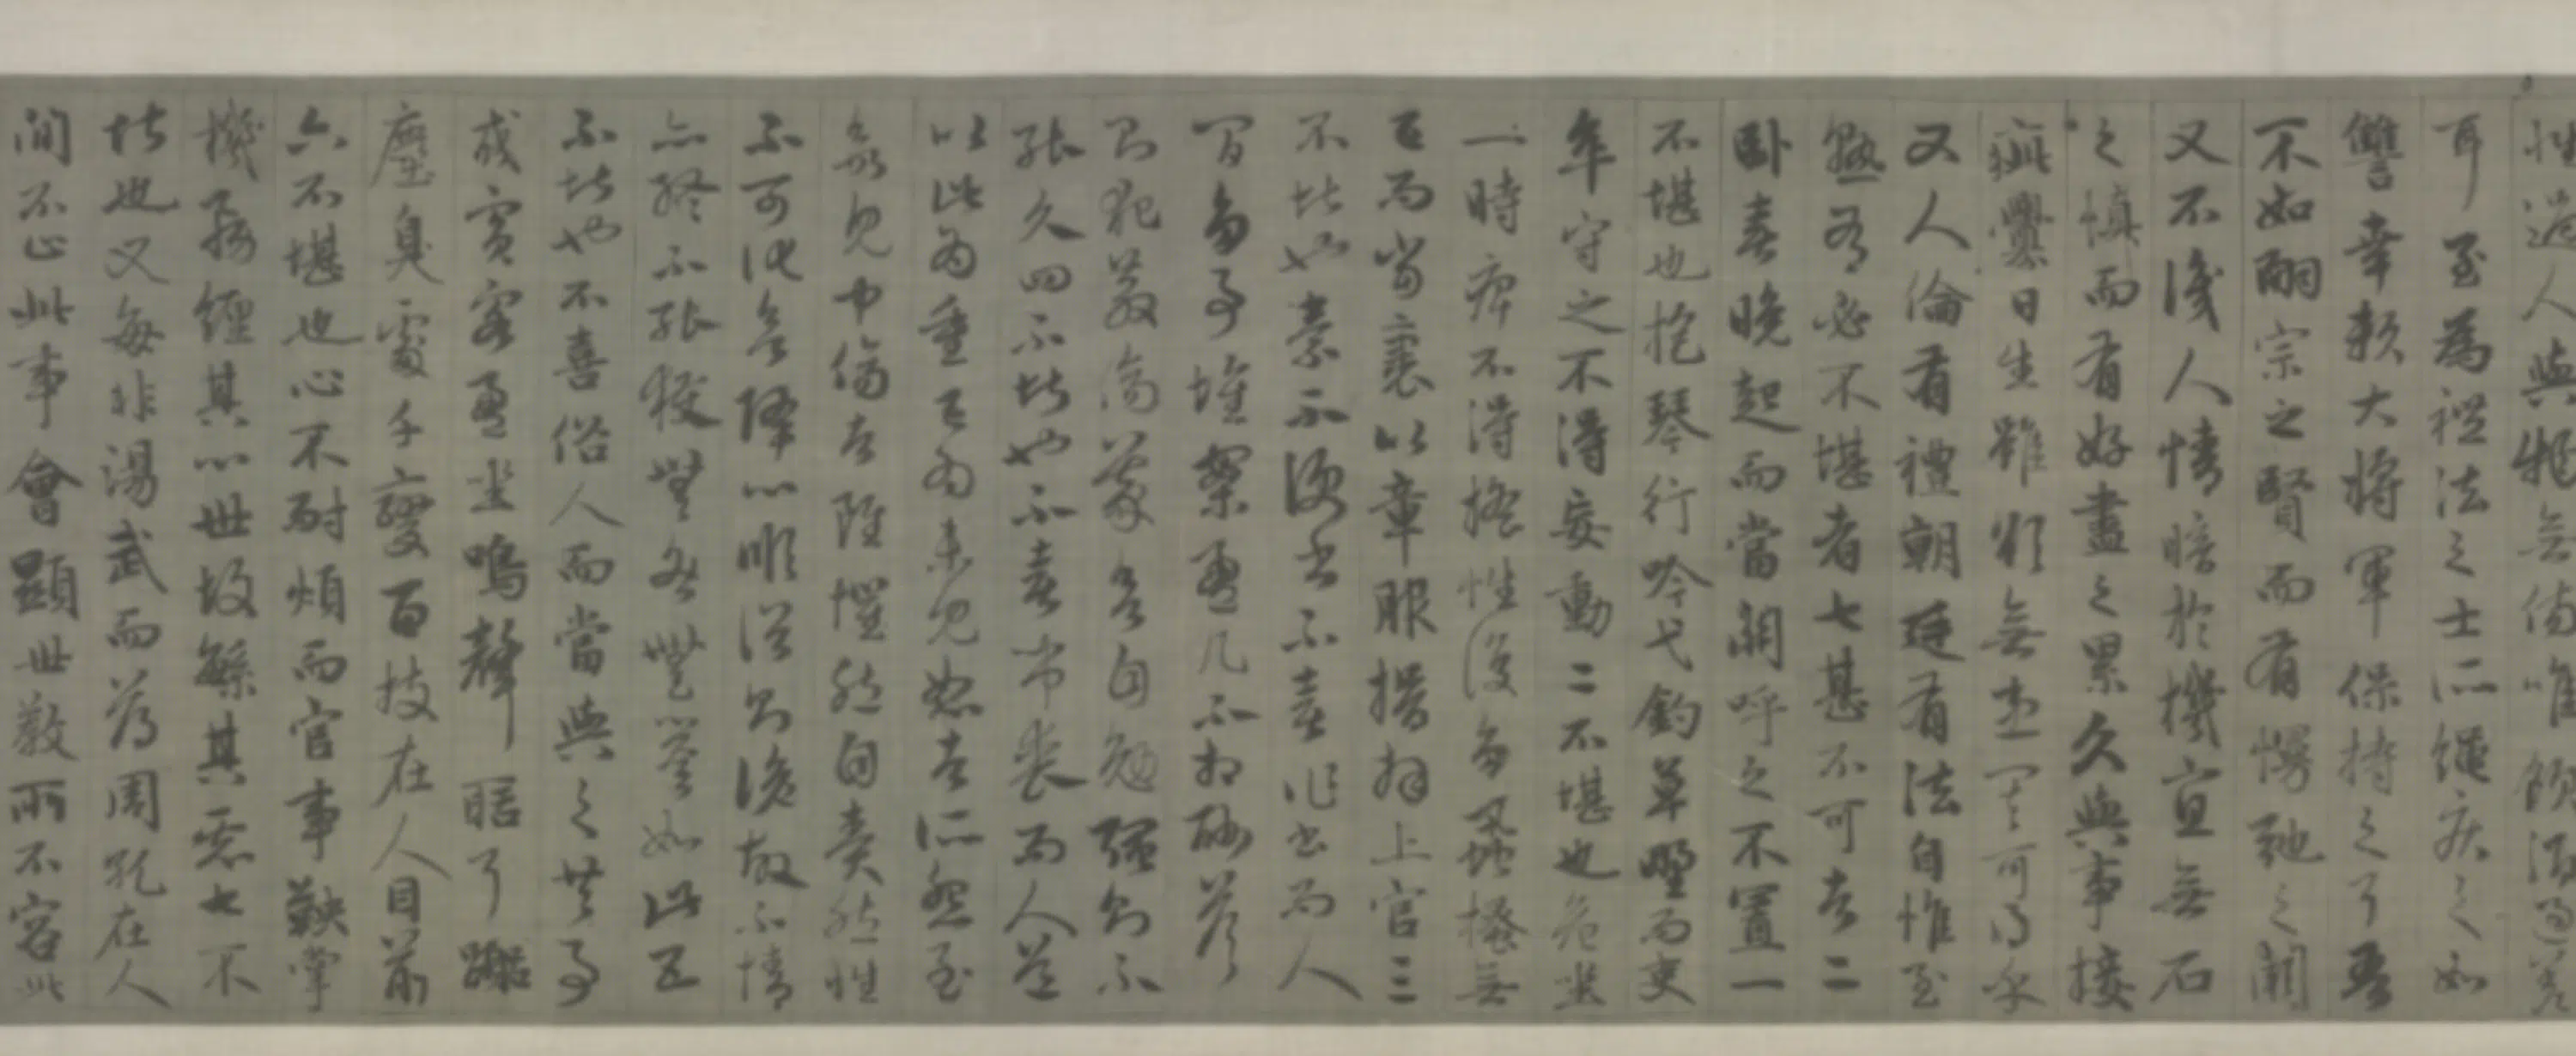 性過人與物無傷唯飲酒過差
耳至為禮法之士所繩疾之如
讎幸賴大將軍保持之耳吾
不如嗣宗之賢而有慢弛之闕
又不識人情暗於機宜無石
之慎而有好盡之累久與事接
疵釁日生雖欲無患其可得乎
又人倫有禮朝廷有法自惟至
熟有必不堪者七甚不可者二
臥喜晚起而當關呼之不置一
不堪也抱琴行吟弋釣草野而吏
卒守之不得妄動二不堪也危坐
一時痹不得搖性復多虱把搔無
已而當裹以章服揖拜上官三
不堪也素不便書不喜作書而人
間多事堆案盈几不相酬答
則犯教傷義欲自勉強則不
能久四不堪也不喜弔喪而人道
以此為重已為未見恕者所怨至
欲見中傷者雖懼然自責然性
不可化欲降心順俗則詭故不情
亦終不能獲無咎無譽如此五
不堪也不喜俗人而當與之共事
或賓客盈坐鳴聲聒耳囂
塵臭處千變百技在人目前
六不堪也心不耐煩而官事鞅掌
機務纏其心世故繁其慮七不
堪也又每非湯武而薄周孔在人
間不止此事會顯世教所不容此